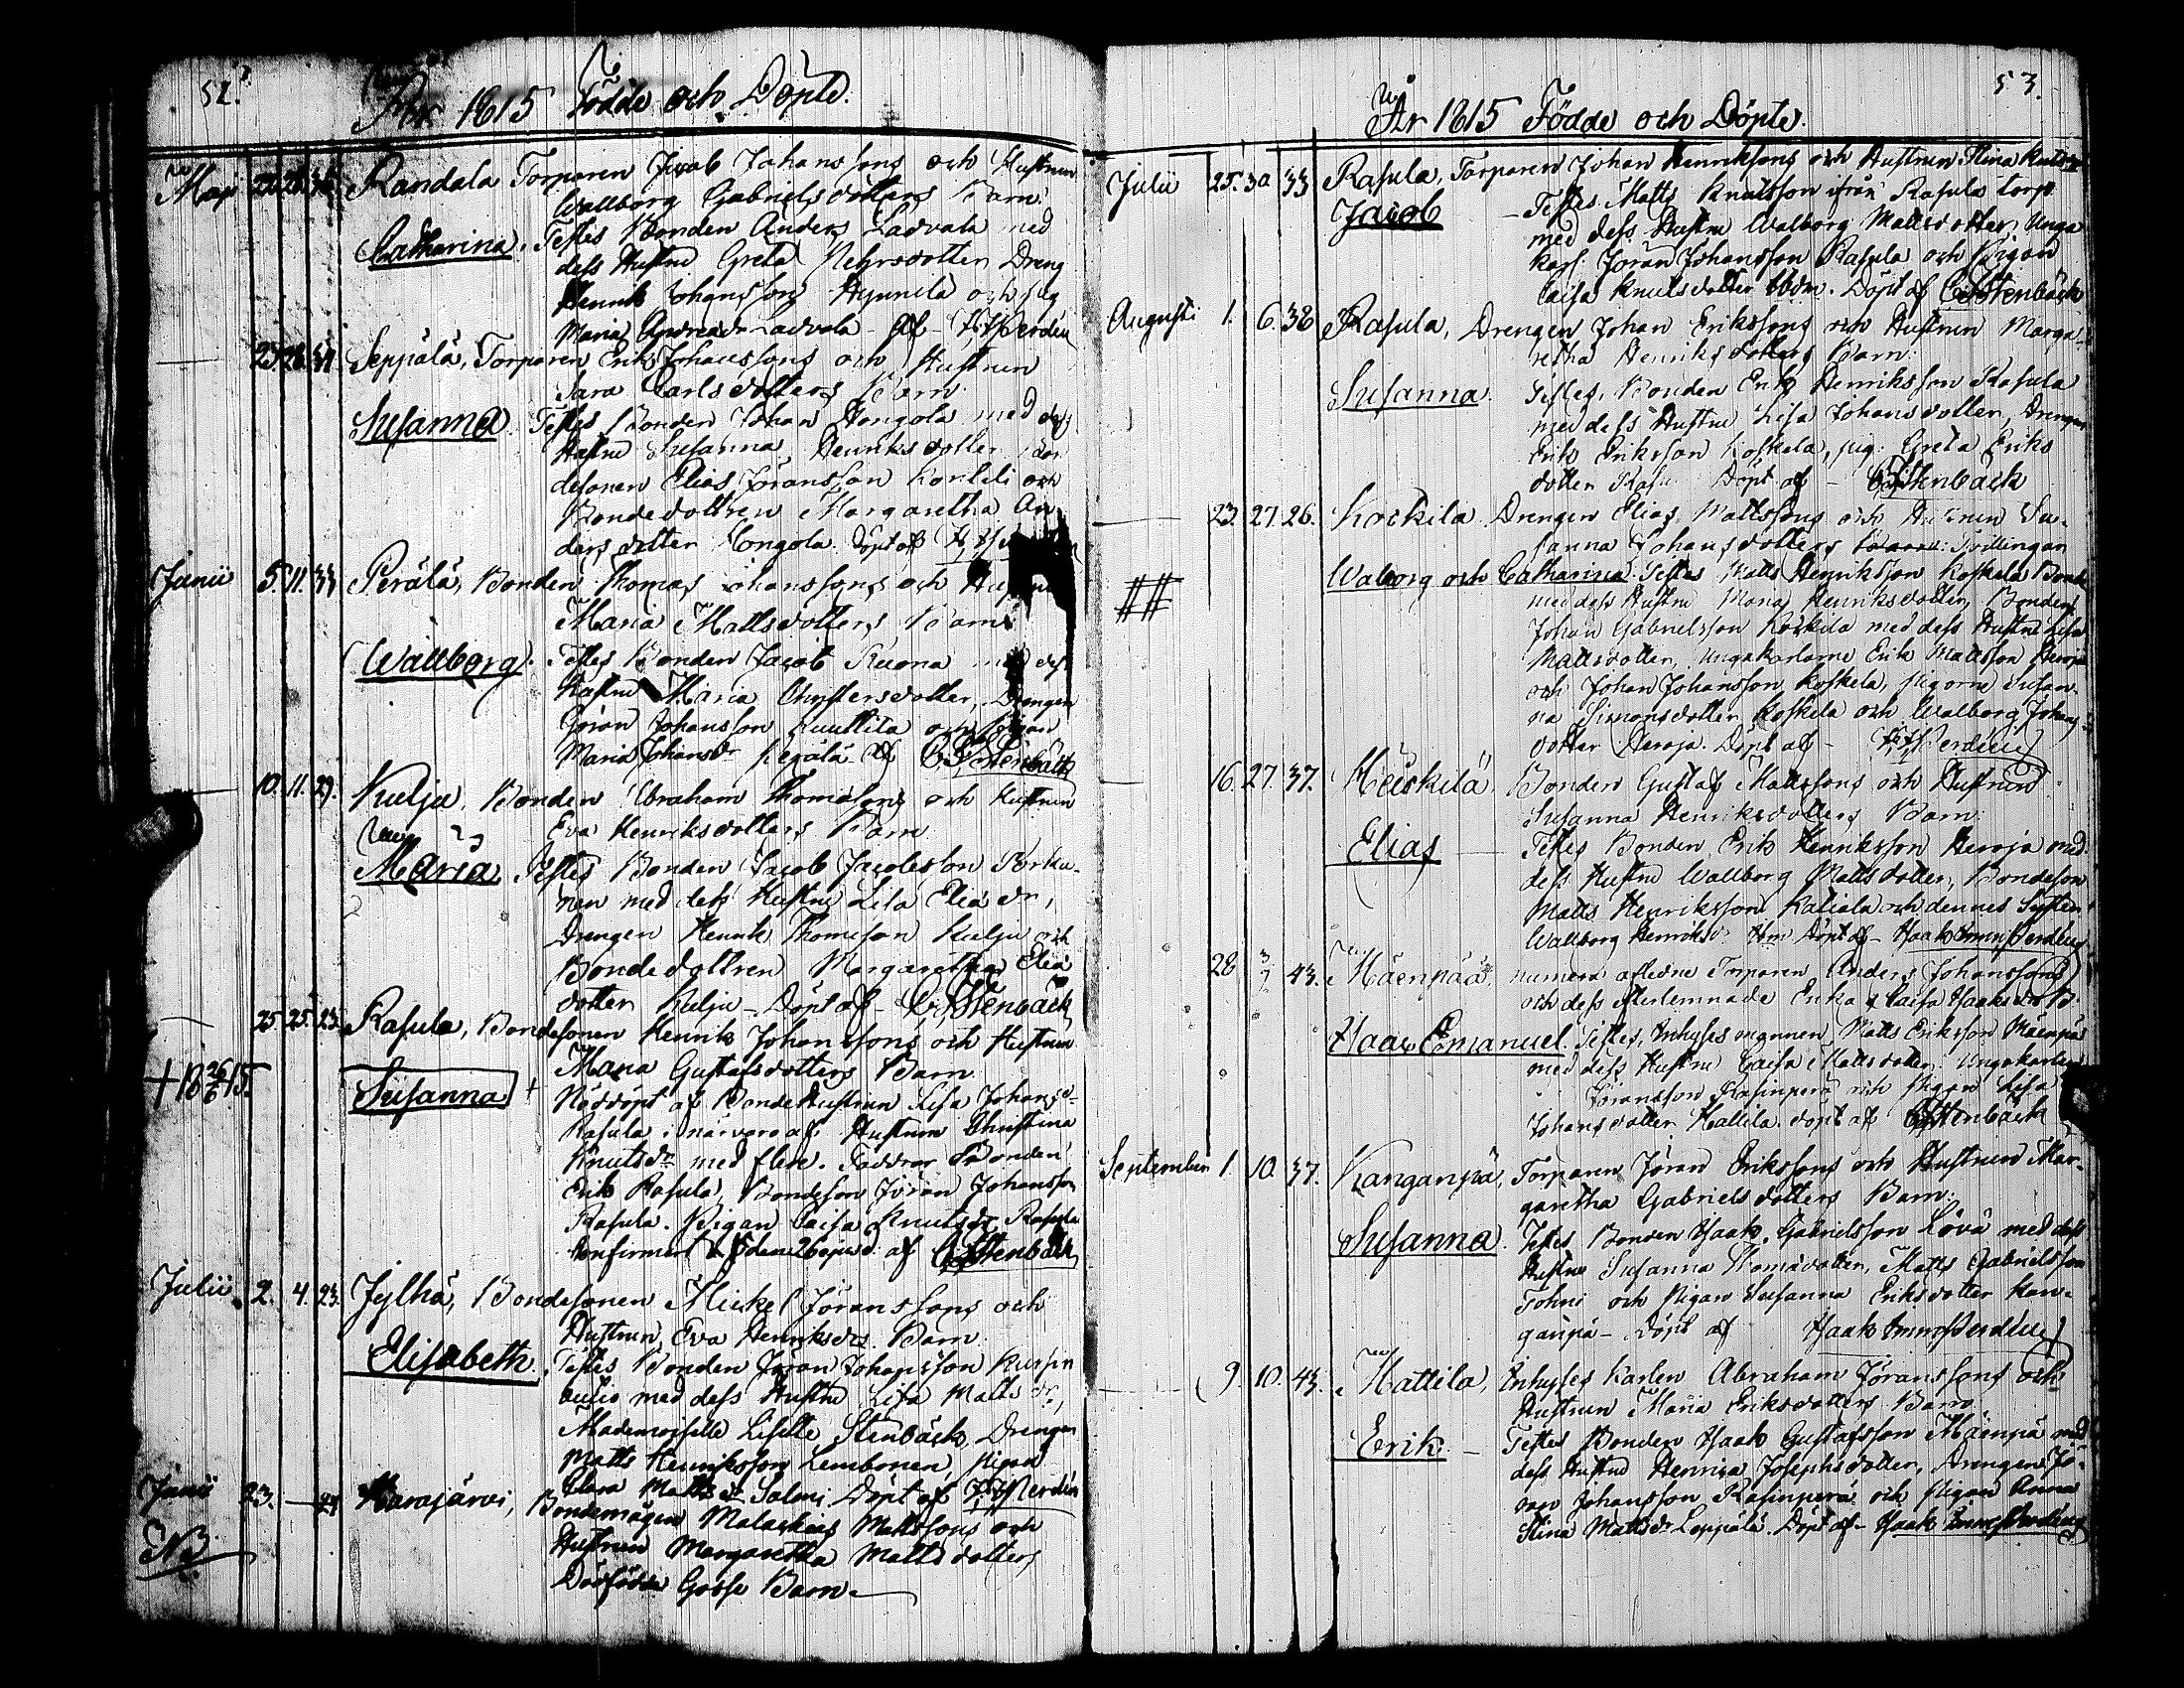 52.
År 1815 Födde och Döpte.
Maji Randala Torparen Jacob Johanssons och Hustrun
Wallborg Gabrielsdotters Barn:
Catharina. Testes Bonden Anders Ladvala med
dess Hustru Greta Dreng
Henrik Johansson och pig
Maria Ladvala af
Seppälä, Torparen Erik Johanssons och Hustrun
Sara Carlsdotters Barn
Susanna. Testes Bonden Johan Hongola med dess
Hustru Susanna Henriksdotter
desonen Elias Jöransson Kortili och
Bondedottren Margaretha An-
dersdotter Hongola. Döpt af
Junii 5. 11. 33 Perälä, Bonden Thomas Johanssons och
Maria Mattsdotters Barn:
Wallborg. Testes Bonden Jacob Ruona med dess
Hustru Maria Drengen
Göran Johansson och Pigan
Maria Johansdr af C. F. Stenbäck
10. 11. 29. Kulju, Bonden Abraham Thomassons och Hustrun
Eva Henriksdotters Barn
Maria. Testes Bonden Jacob Jacobsson
nen med dess Hustru Lisa Elia dr,
Drengen Henrik Thomsson Kulju och
Bondedottren Margaretha Elia
dotter Kulju – Döpt af – C. F. Stenbäck
25. 25. 23. Rasula, Bondesonen Henrik Johanssons och Hustrun
+ 18 26/6 15. Maria Gustafsdotters Barn
Susanna + Nöddöpt af BondeHustrun Lisa Johans dr
Rasula i närvaro af Hustrun Christina
Knutsdr med flere. Faddrar Bonden
Erik Rasula, Bondeson Jöran Johansson
Rasula. Pigan Caisa Knutsdr Rasula
Confirmert den 26 ejusd. af C. F. Stenbäck
Julii 2. 4. 23. Jylhä, Bondesonen Mickel Jöranssons och
Hustrun Eva Henriksdrs Barn
Elisabeth. Testes Bonden Jöran Johansson
med dess Hustru Lisa Matts dr,
Mademoiselle Lisette Stenbäck, Drengen
Matts Henriksson Lembonen, Pigan
Clara Matts dr Salmi Döpt af
Junii 23. – Karajärvi, Bondemågen Malachias Mattssons och
NB Hustrun Margaretha Mattsdotters
Dödfödde Gosse Barn –
53.
År 1815 Födde och Döpte.
Julii 25. 30 33 Rasula, Torparen Johan Henrikssons och Hustrun Stina
Jacob – Testes Matts Knutsson ifrån Rasula torp
med dess Hustru Walborg Mattsdotter, Unga
karl. Jöran Johansson Rasula och Pigan
Caisa Knutsdotter ibdm. Döpt af C. F. Stenbäck
Augusti 1. 6. 38 Rasula, Drengen Johan Erikssons och Hustrun Marga-
retha Henriksdotters Barn:
Susanna. Testes, Bonden Erik Henriksson Rasula
med dess Hustru Lisa Johansdotter, Drengen
Erik Eriksson Koskela, pig: Greta Eriks
dotter Döpt af – C. F. Stenbäck
23. 27. 26. Koskila Drengen Elias Mattssons och Hustrun Su-
sanna Johansdotters Tvillingar
Walborg och Catharina. Testes Matts Henriksson Koskela
## med dess Hustru Maria Henriksdotter, Bonden
Johan Gabrielsson Koskila med dess Hustru Lisa
Mattsdotter, ungakarlarne Erik Mattsson Heroja
och Johan Johansson Koskela, pigorne Susan-
na Simonsdotter Koskela och Walborg Johans
dotter Heroja. Döpt af –
16. 27. 37. Heiskilä Bonden Gustaf Mattssons och Hustrun
Susanna Henriksdotters Barn:
Elias – Testes Bonden Erik Henriksson Heroja med
dess Hustru Wallborg Mattsdotter, Bondeson
Matts Henriksson och dennes Syster
Wallborg Henriksdr. Döpt af –
28 43. Mäenpää, numera aflidne Torparen Anders Johanssons
och dess efterlemnade Enka Caisa Isaksdrs B.
Isaac Emanuel. Testes, Inhysesmannen Matts Eriksson Mäenpää
med dess Hustru Caisa Mattsdotter, Ungakarlen
Jöransson Rasinperä och Pigan Lisa
Johansdotter Hallila. döpt af C. F. Stenbäck
September 1. 10. 37. Kanganpä, Torparen Jöran Erikssons och Hustrun Mar-
garetha Gabrielsdotters Barn:
Susanna. Testes Bonden Isaak Gabrielsson med dess
Hustru Susanna Thomasdotter, Matts Gabrielsson
och Pigan Susanna Eriksdotter Kan-
ganpä – Döpt af
9. 10. 43. Mattila, Inhyses karlen Abraham Jöranssons och
Hustrun Maria Eriksdotters Barn
Erik. – Testes Bonden Isaak Gustafsson Mäenpä med
dess Hustru Henrica Josephsdotter, Drengen Jö-
ran Johansson Rasinperä och Pigan Anna
Stina Mattsdr Leppälä. Döpt af –